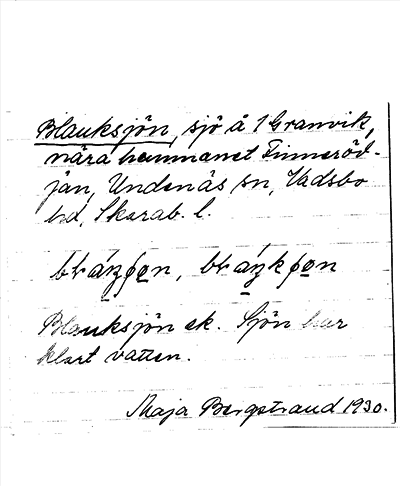 Blanksjön, sjö å 1 Granvik,
nära hemmanet Finneröd-
jan, Undenäs sn, Vadsbo
hd, Skarab. l.
Blanksjön ek. Sjön har
klart vatten.
Maja Bergstrand 1930.